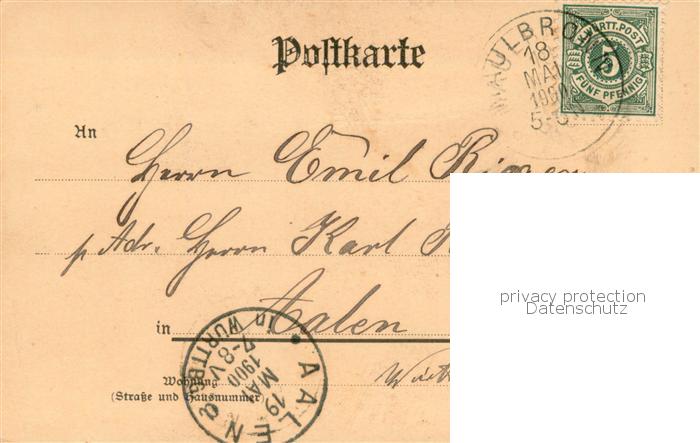 Postkarte
MAULBRONN
18
MAI
1900
K. WÜRTT. POST
5
FÜNF PFENNIG
An
Herrn Emil
p. Adr. Herrn Karl
in Aalen
Wohnung
(Straße und Hausnummer)
AALEN
in WÜRTTBG
7-8 V
1900
MAI
19
a
privacy protection
Datenschutz